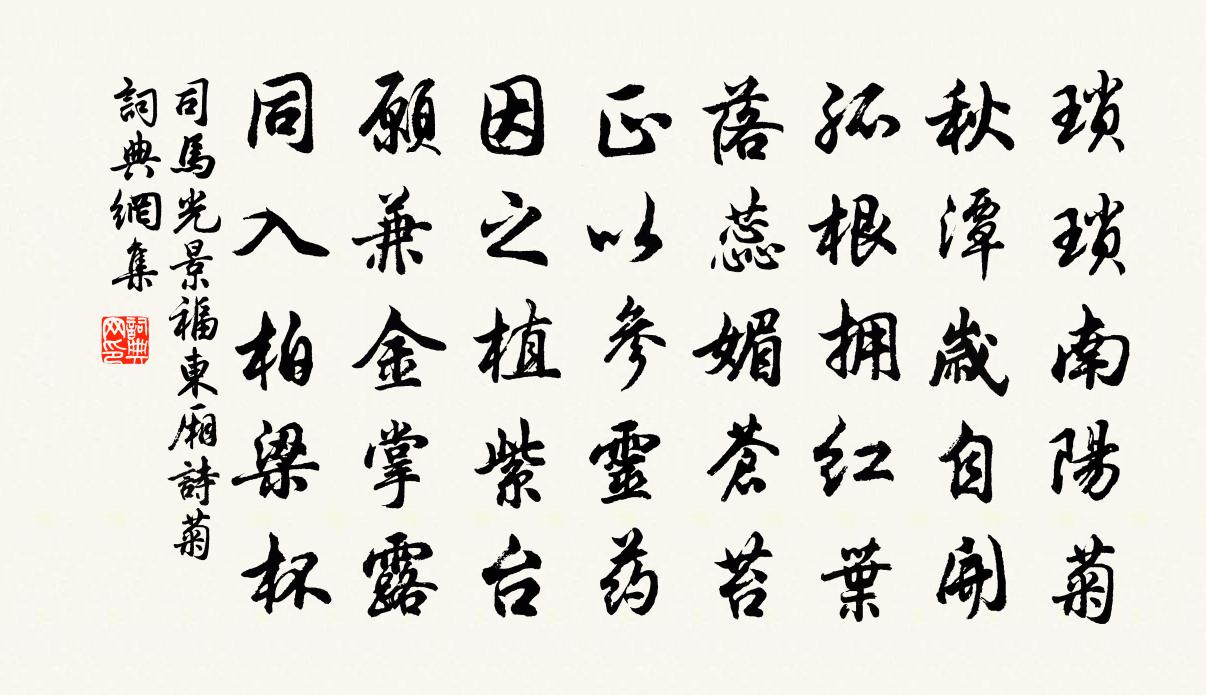 瑣瑣南陽菊
秋潭歲自開
孤根拥红葉
落蕊媚蒼苔
正以參靈药
因之植紫台
願兼金掌露
同入柏梁杯
司馬光景福東厢詩菊
詞典網集
詞典网印